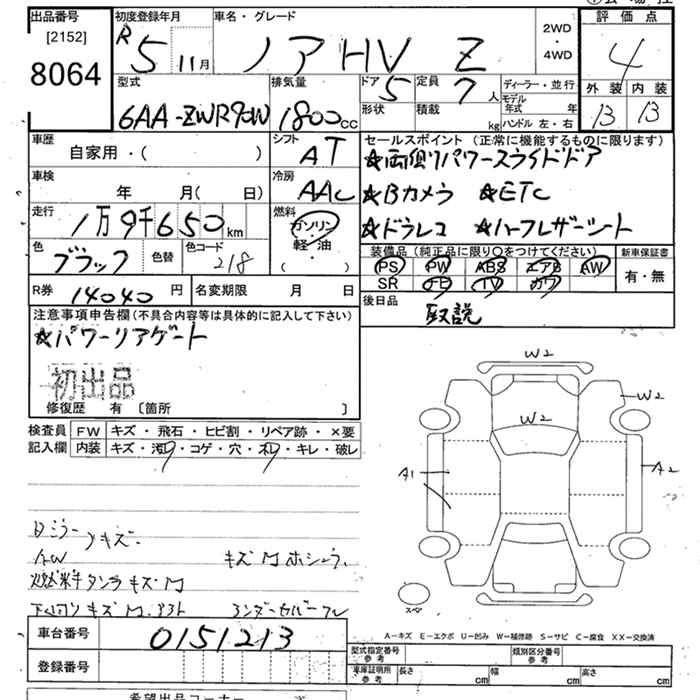 出品番号
[2152]
8064
初度登録年月
R5 11月
車名・グレード
ノア HV Z
2WD
・
4WD
評価点
4
外装 内装
B B
型式
6AA-ZWR90W
排気量
1800cc
ドア 5
形状
定員 7人
積載 kg
ディーラー・並行
モデル年式 年
ハンドル 左・右
車歴
自家用・( )
シフト
AT
車検
年 月( 日)
冷房
AAC
走行
1万9千650km
燃料
ガソリン
軽・油
( ・ )
色
ブラック
色替
色コード
218
R券 14040円
名変期限 月 日
セールスポイント (正常に機能するものに限ります)
☆両側パワースライドドア
☆Bカメラ ☆ETC
☆ドラレコ ☆ハーフレザーシート
装備品(純正品に限り○をつけてください)
PS PW ABS エアB AW
SR ナビ TV カワ
新車保証書
有・無
後日品
取説
注意事項申告欄(不具合内容等は具体的に記入して下さい)
☆パワーリアゲート
初出品
修復歴 有 〔箇所 〕
検査員記入欄
FW キズ・飛石・ヒビ割・リペア跡・×要
内装 キズ・汚れ・コゲ・穴・ネジ・キレ・破レ
W2
W2
W2
A1
A2
スペ
キズ
AW キズ
燃料タンク キズ
下廻り キズ
A-キズ E-エクボ U-凹み W-補修跡 S-サビ C-腐食 XX-交換済
車台番号
0151213
登録番号
型式指定番号
参考
類別区分番号
参考
車庫証明用
参考
長さ cm 幅 cm 高さ cm
希望出品コーナー